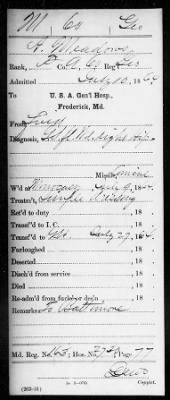 M Co Geo
A. Meadows
Rank, Co. A, 61 Reg't Geo
Admitted July 10, 1864
To U. S. A. Gen'l Hosp.,
Frederick, Md.
From Field
Diagnosis,
Missile,
W'd at Monocacy July 9, 1864.
Treatm't, Simple Dressing
Ret'd to duty , 18
Transf'd to I. C. , 18
Transf'd to July 27, 1864
Furloughed , 18
Deserted , 18
Disch'd from service , 18
Died , 18
Re-adm'd from furlo' or des'n , 18
Remarks: To Baltimore
Md. Reg. No. 165; Hos. No. Page 77
Copyist.